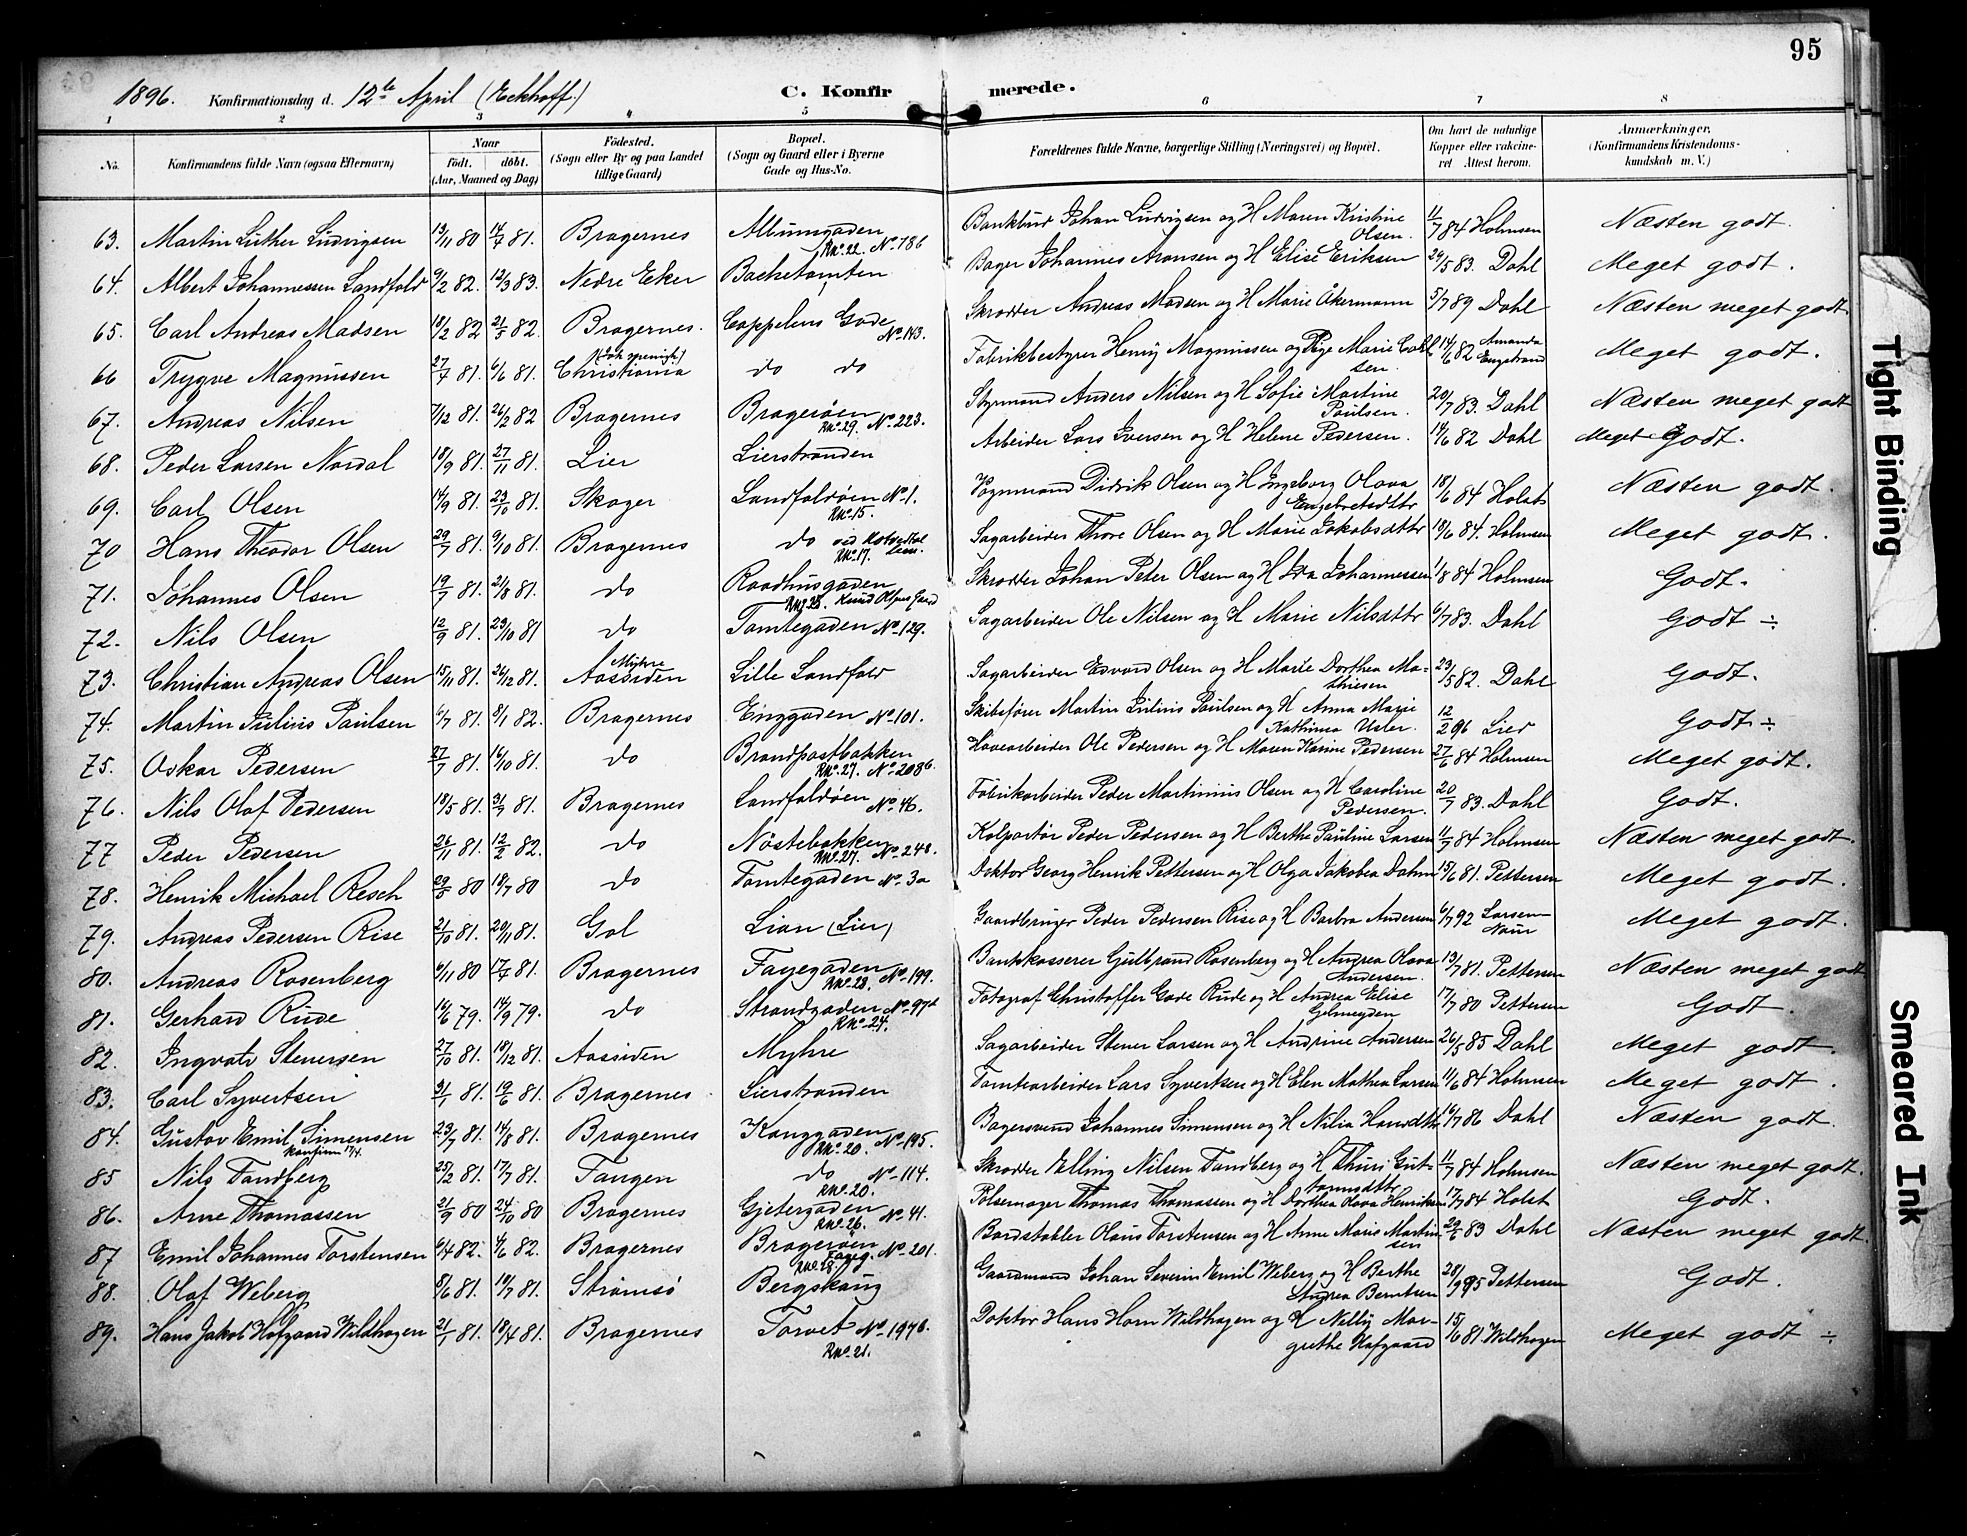 95
1896. Konfirmationsdag d. 12te April (Eckhoff.) C. Konfirmerede.
1 2 3 4 5 6 7 8
No. Konfirmandens fulde Navn (ogsaa Efternavn) Naar født. døbt. (Aar, Maaned og Dag) Fødested. (Sogn eller By og paa Landet tillige Gaard) Bopæl. (Sogn og Gaard eller i Byerne Gade og Hus-No. Forældrenes fulde Navne, borgerlige Stilling (Næringsvei) og Bopæl. Om havt de naturlige Kopper eller vaccineret Attest herom. Anmærkninger. (Konfirmandens Kristendomskundskab m. V.)
63. Martin Luther Ludvigsen 13/11 80 14/7 81. Bragernes Albumsgaden RNo. 22. No. 786 Bankbud Johan Ludvigsen og H Maren Kristine Olsen. 11/7 84 Holmsen Næsten godt.
64. Albert Johannessen Landfald 9/2 82. 12/3 83. Nedre Eker Bachetomten Bager Johannes Aronsen og H Elise Eriksen 29/5 83. Dahl Meget godt.
65. Carl Andreas Madsen 18/2 82 21/5 82. Bragernes. Cappelens Gade No. 143. Skrædder Andreas Madsen og H Marie Åkermann 5/7 89 Dahl Næsten meget godt
66 Trygve Magnussen 27/4 81. 6/6 81. Christiania do do Fabrikbestyrer Henry Magnussen og Pige Marie Carlsen. 14/6 82 Amanda Engstrand Meget godt.
67. Andreas Nilsen 7/12 81. 26/2 82 Bragernes Bragerøen RNo. 29. No. 223. Styrmand Anders Nilsen og H Sofie Martine Paulsen. 20/7 83. Dahl Næsten meget godt
68. Peder Larsen Nordal 18/9 81. 27/11 81. Lier Lierstranden Arbeider Lars Iversen og H Helene Pedersen. 14/6 82 Dahl Meget Godt.
69. Carl Olsen 14/9 81. 23/10 81. Skoger Landfaldøen No. 1. RNo. 15. Vognmand Didrik Olsen og H Ingeborg Olava Engebretsdttr 18/6 84 Holst Næsten godt.
70 Hans Theodor Olsen 29/7 81. 9/10 81. Bragernes do RNo. 17. Sagarbeider Thore Olsen og H Marie Jakobsdttr 18/6 84. Holmsen Meget godt.
71. Johannes Olsen 19/7 81. 21/8 81. do Raadhusgaden Knud Olsens Gaard Skrædder Johan Peter Olsen og H Ida Johannessen 1/8 84 Holmsen Godt.
72. Nils Olsen 12/9 81. 23/10 81 do Tomtegaden No. 129. Sagarbeider Ole Nilsen og H Marie Nilsdttr 6/7 83. Dahl Godt ÷
73. Christian Andreas Olsen 15/11 81. 26/12 81. Myhre Aassiden Lille Landfald Sagarbeider Edvard Olsen og H Marie Dorthea Mathiesen 23/5 82. Dahl Godt.
74. Martin Julius Paulsen 6/7 81. 8/1 82. Bragernes Enggaden No. 101. Skibsfører Martin Julius Paulsen og H Anna Marie Kathinca Usler. 12/2 96 Lied Godt ÷
75. Oskar Pedersen 27/7 81. 16/10 81. do Brandpostbakken RNo. 27. No. 208b. Havearbeider Ole Pedersen og H Maren Karine Pedersen 27/6 84 Holmsen Meget godt.
76. Nils Olaf Pedersen 18/5 81. 31/7 81. Bragernes Landfaldøen No. 46. Fabrikarbeider Peder Martinius Olsen og H Caroline Pedersen. 20/7 83. Dahl Godt.
77 Peder Pedersen 26/11 81. 12/2 82. do Nøstebakken RNo. 27. No. 248. Kolportør Peder Pedersen og H Berthe Pauline Larsen 11/7 84 Holmsen Næsten meget godt
78. Henrik Michael Resch 29/5 80 18/7 80 do Tomtegaden No. 3a Doktor Georg Henrik Pettersen og H Olga Jakobea Dahm 15/6 81. Pettersen Meget godt.
79. Andreas Pedersen Rise 21/10 81. 20/11 81. Gol Lian (Lier) Gaardbruger Peder Pedersen Rise og H Barbra Andersen 6/7 92 Larsen Meget godt.
80. Andreas Rosenberg 6/11 80 17/4 81. Bragernes Fagegaden RNo. 28. No. 199. Bankkasserer Gulbrand Rosenberg og H Andrea Olava Andersen. 13/7 81. Pettersen Næsten meget godt
81. Gerhard Rude 14/6 79. 14/9 79. do Strandgaden No. 97d RNo. 24. Fotograf Christoffer Gade Rude og H Andrea Elise Gilmeyden 17/7 80 Pettersen Godt.
82. Ingvald Stenersen 27/10 81. 18/12 81. Aassiden Myhre Sagarbeider Stener Larsen og H Andrine Andersen 26/5 85 Dahl Meget godt.
83. Carl Syvertsen 3/1 81. 19/6 81. Bragernes Lierstranden Tomtearbeider Lars Syvertsen og H Elen Mathea Larsen 11/6 84 Holmsen Meget godt.
84. Gustav Emil Simensen Konfirm 17/4. 23/7 81. 14/8 81. Bragernes Konggaden RNo. 20. No. 195. Bagersvend Johannes Simensen og H Nilia Hansdttr 16/7 86 Dahl Næsten godt.
85 Nils Tandberg 25/2 81. 17/7 81. Tangen do No. 114. RNo. 20. Skrædder Elling Nilsen Tandberg og H Thuri Guttormsdttr 11/7 84 Holmsen Næsten meget godt.
86. Arne Thomassen 21/9 80 24/10 80 Bragernes Gjetergaden RNo. 26. No. 41. Pølsemager Thomas Thomassen og H Dorthea Olava Henriksen 17/7 84 Holst Godt.
87 Emil Johannes Torstensen 6/4 82. 4/6 82. Bragernes Bragerøen Fageg. No. 201. RNo. 28. Bordstabler Olaus Torstensen og H Anne Marie Martinsen 29/6 83 Dahl Næsten meget godt.
88. Olaf Weberg 8/6 81. 10/7 81. Strømsø Bergskaug Gaardmand Johan Severin Emil Weberg og H Berthe Andrea Berntsen 28/9 95 Pettersen Godt.
89. Hans Jakob Hofgaard Wildhagen 21/1 81. 18/4 81. Bragernes Torvet No. 197b. RNo. 21. Doktor Hans Horn Wildhagen og H Nelly Margrethe Hofgaard 15/6 81. Wildhagen Meget godt ÷
Tight Binding
Smeared Ink